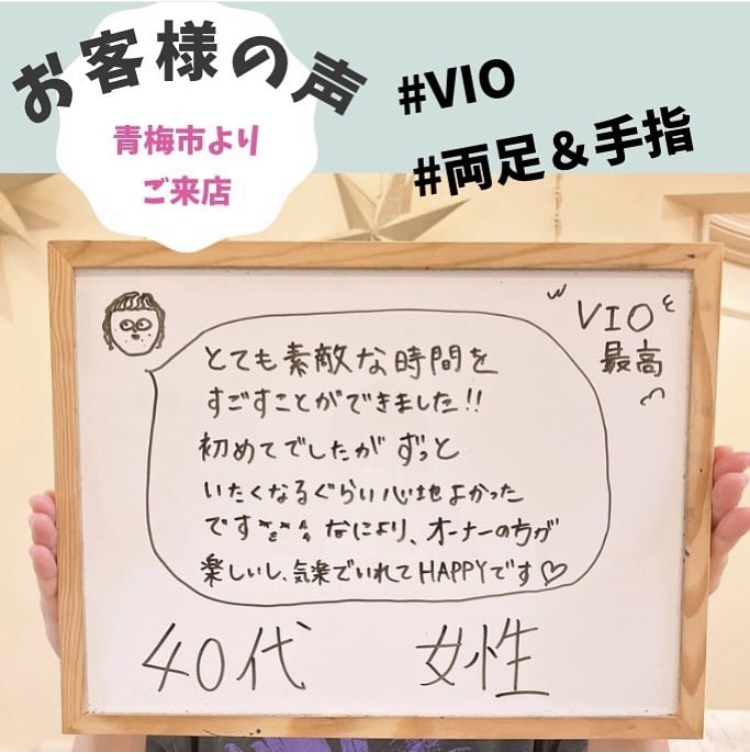 お客様の声
青梅市より
ご来店
#VIO
#両足＆手指
VIO
最高
とても素敵な時間を
すごすことができました!!
初めてでしたが ずっと
いたくなるぐらい心地よかった
です なにより、オーナーの方が
楽しいし、気楽でいれてHAPPYです♡
40代 女性